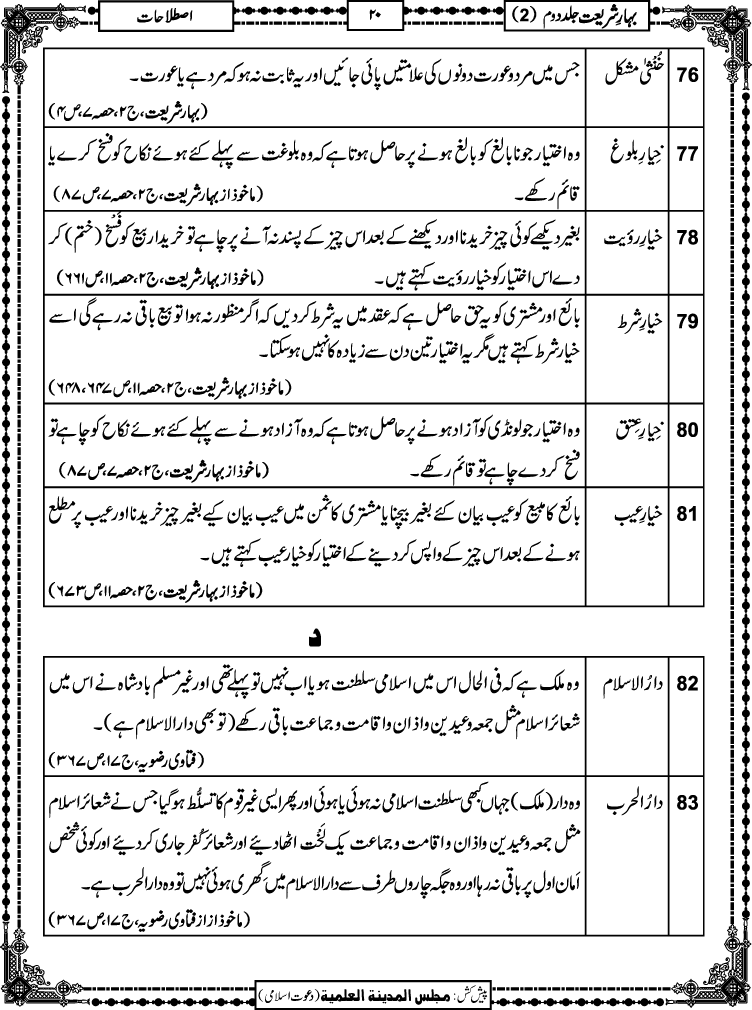 بہارِ شریعت جلد دوم (2)
۲۰
اصطلاحات
76 خُنثیٰ مشکل جس میں مرد و عورت دونوں کی علامتیں پائی جائیں اور یہ ثابت نہ ہو کہ مرد ہے یا عورت۔
(بہارِ شریعت، ج۲، حصہ ۷، ص۴)
77 خِیارِ بلوغ وہ اختیار جو نابالغ کو بالغ ہونے پر حاصل ہوتا ہے کہ وہ بلوغت سے پہلے کئے ہوئے نکاح کو فسخ کرے یا
قائم رکھے۔ (ماخوذ از بہارِ شریعت، ج۲، حصہ ۷، ص۸۷)
78 خیارِ رؤیت بغیر دیکھے کوئی چیز خریدنا اور دیکھنے کے بعد اس چیز کے پسند نہ آنے پر چاہے تو خریدار بیع کو فَسْخ (ختم) کر
دے اس اختیار کو خیار رؤیت کہتے ہیں۔ (ماخوذ از بہارِ شریعت، ج۲، حصہ ۱۱، ص۶۶۱)
79 خیارِ شرط بائع اور مشتری کو یہ حق حاصل ہے کہ عقد میں یہ شرط کر دیں کہ اگر منظور نہ ہوا تو بیع باقی نہ رہے گی اسے
خیار شرط کہتے ہیں مگر یہ اختیار تین دن سے زیادہ کا نہیں ہوسکتا۔
(ماخوذ از بہارِ شریعت، ج۲، حصہ ۱۱، ص۶۴۷، ۶۴۸)
80 خِیارِ عِتق وہ اختیار جو لونڈی کو آزاد ہونے پر حاصل ہوتا ہے کہ وہ آزاد ہونے سے پہلے کئے ہوئے نکاح کو چاہے تو
فسخ کر دے چاہے تو قائم رکھے۔ (ماخوذ از بہارِ شریعت، ج۲، حصہ ۷، ص۸۷)
81 خیارِ عیب بائع کا مبیع کو عیب بیان کئے بغیر بیچنا یا مشتری کا ثمن میں عیب بیان کیے بغیر چیز خریدنا اور عیب پر مطلع
ہونے کے بعد اس چیز کے واپس کر دینے کے اختیار کو خیار عیب کہتے ہیں۔
(ماخوذ از بہارِ شریعت، ج۲، حصہ ۱۱، ص۶۷۳)
د
82 دارُ الاسلام وہ ملک ہے کہ فی الحال اس میں اسلامی سلطنت ہو یا اب نہیں تو پہلے تھی اور غیر مسلم بادشاہ نے اس میں
شعائر اسلام مثل جمعہ و عیدین و اذان و اقامت و جماعت باقی رکھے (تو بھی دار الاسلام ہے)۔
(فتاوی رضویہ، ج۱۷، ص۳۶۷)
83 دارُ الحرب وہ دار (ملک) جہاں کبھی سلطنت اسلامی نہ ہوئی یا ہوئی اور پھر ایسی غیر قوم کا تسلُّط ہوگیا جس نے شعائر اسلام
مثل جمعہ و عیدین و اذان و اقامت و جماعت یک لَخْت اٹھا دیئے اور شعائر کُفر جاری کر دیئے اور کوئی شخص
اَمان اول پر باقی نہ رہا اور وہ جگہ چاروں طرف سے دار الاسلام میں گِھری ہوئی نہیں تو وہ دار الحرب ہے۔
(ماخوذ از از فتاوی رضویہ، ج۱۷، ص۳۶۷)
پیش کش: مجلس المدينة العلمية (دعوت اسلامی)